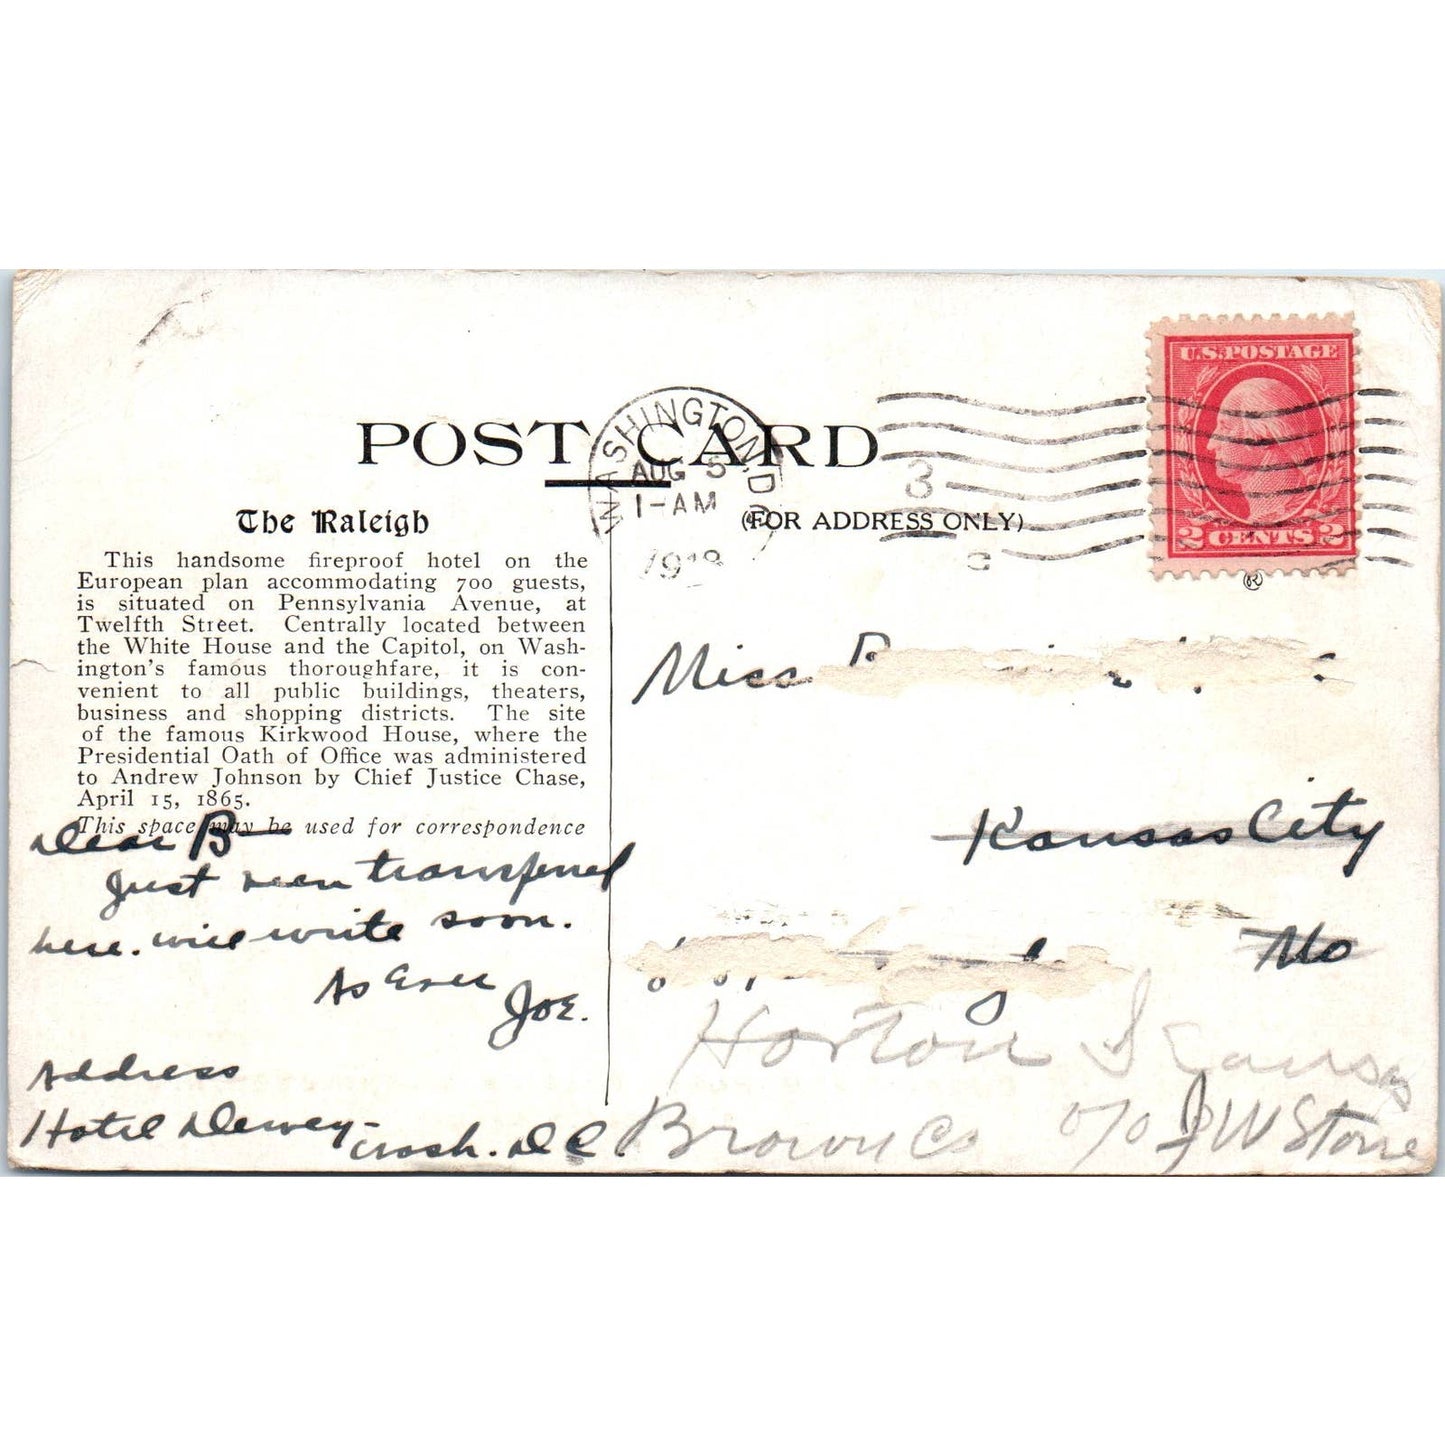 U.S. POSTAGE
2 CENTS 2
POST CARD
WASHINGTON, D.C.
AUG 5
1-AM
1918
3
C
The Raleigh
(FOR ADDRESS ONLY)
®
This handsome fireproof hotel on the
European plan accommodating 700 guests,
is situated on Pennsylvania Avenue, at
Twelfth Street. Centrally located between
the White House and the Capitol, on Wash-
ington's famous thoroughfare, it is con-
venient to all public buildings, theaters,
business and shopping districts. The site
of the famous Kirkwood House, where the
Presidential Oath of Office was administered
to Andrew Johnson by Chief Justice Chase,
April 15, 1865.
This space may be used for correspondence
Dear B—
Just been transferred
here. will write soon.
As Ever
Joe.
Address
Hotel Dewey-
Wash. D C
Miss
Kansas City
Mo
Horton Kansas
Brown Co c/o J W Stone